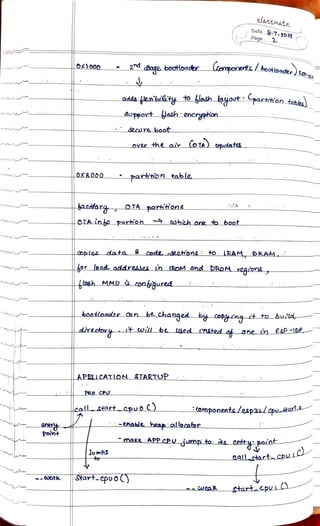 classmate
Date 8-7-2019
Page 2.
0x1000 • 2nd stage bootloader (components/bootloader)
adds flexibility to flash layout (partition tables)
support flash encryption
secure boot
over the air (OTA) updates
0x8000 • partition table
factory, OTA partitions
OTA info partition → which one to boot
copies data & code sections to IRAM, DRAM.
for load addresses in IROM and DROM regions,
flash MMU is configured
bootloader can be changed by copying it to build
directory. it will be used instead of one in ESP-IDF
APPLICATION STARTUP
PRO CPU
call_start_cpu0() : components/esp32/cpu_start.c
entry point
- enable heap allocator
- make APP CPU jump to its entry point
jumps to
call_start_cpu1()
--weak start_cpu0()
--weak start_cpu1()